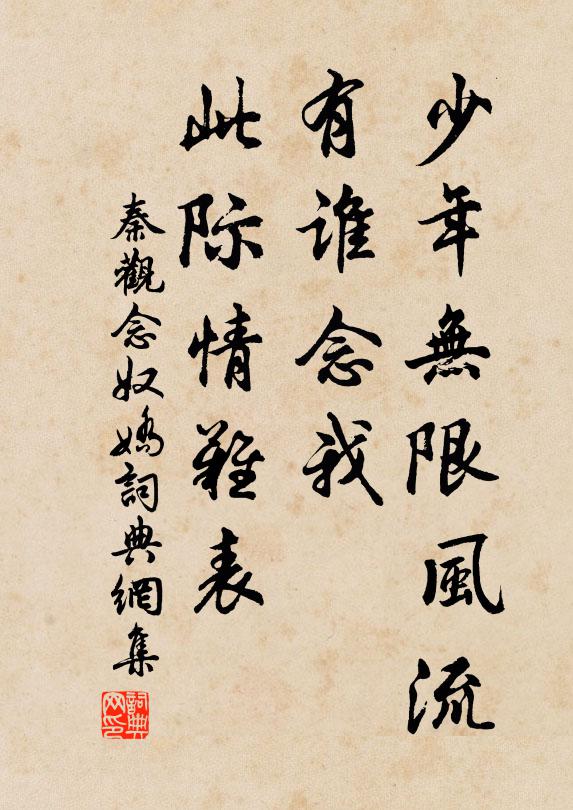 少年無限風流
有谁念我
此际情難表
秦觀念奴嬌詞典網集
詞典网印